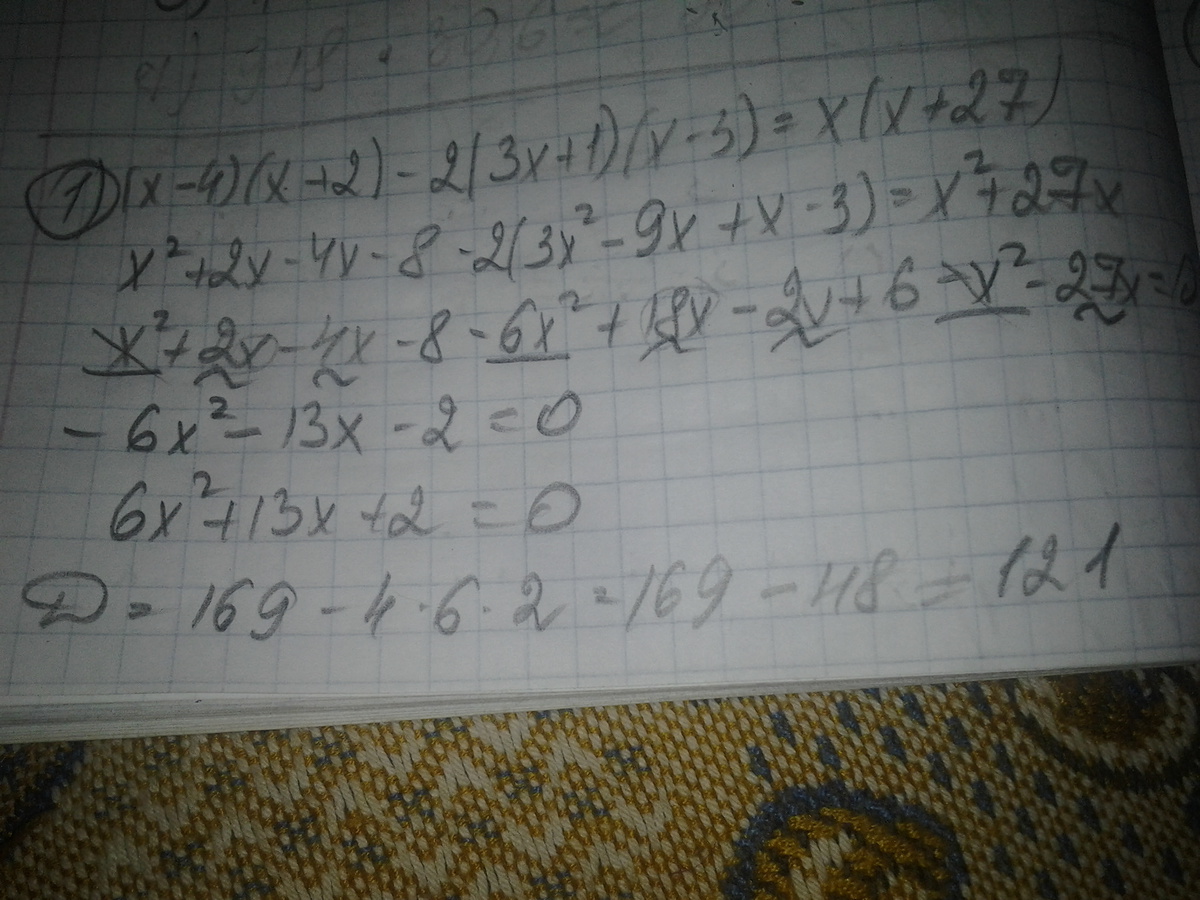 1) (x-4)(x+2)-2(3x+1)(x-3)=x(x+27)
x²+2x-4x-8-2(3x²-9x+x-3)=x²+27x
x²+2x-4x-8-6x²+18x-2x+6-x²-27x=0
-6x²-13x-2=0
6x²+13x+2=0
D=169-4·6·2=169-48=121